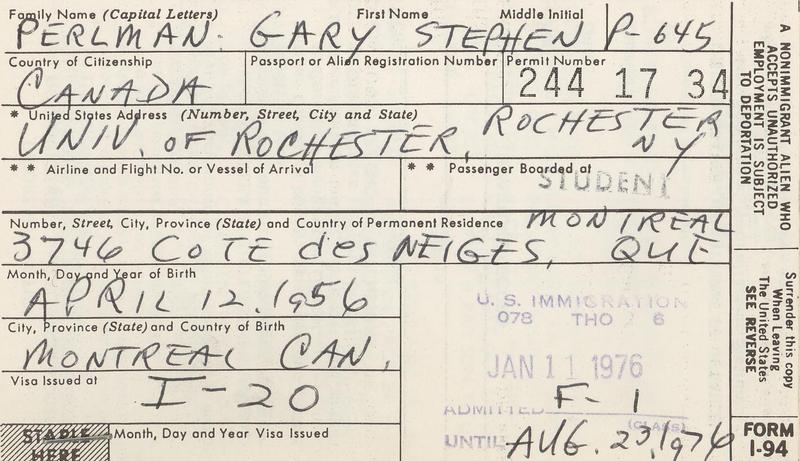 Family Name (Capital Letters) First Name Middle Initial
PERLMAN. GARY STEPHEN P-645
Country of Citizenship Passport or Alien Registration Number Permit Number
CANADA 244 17 34
* United States Address (Number, Street, City and State)
UNIV. OF ROCHESTER, ROCHESTER
NY
* * Airline and Flight No. or Vessel of Arrival * * Passenger Boarded at
STUDENT
Number, Street, City, Province (State) and Country of Permanent Residence MONTREAL
3746 COTE des NEIGES, QUE
Month, Day and Year of Birth
APRIL 12, 1956
City, Province (State) and Country of Birth
MONTREAL CAN,
Visa Issued at
I-20
STAPLE HERE
Month, Day and Year Visa Issued
U. S. IMMIGRATION
078 THO 6
JAN 11 1976
ADMITTED F-1
(CLASS)
UNTIL AUG. 23, 1976
A NONIMMIGRANT ALIEN WHO
ACCEPTS UNAUTHORIZED
EMPLOYMENT IS SUBJECT
TO DEPORTATION
Surrender this copy
When Leaving
The United States
SEE REVERSE
FORM
I-94